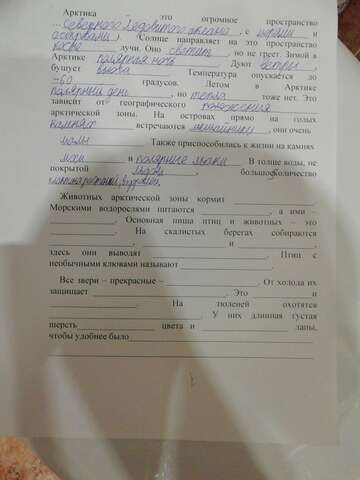 Арктика – это огромное пространство
...Северного Ледовитого океана, с льдами и
айсбергами). Солнце направляет на это пространство
косые лучи. Оно светит, но не греет. Зимой в
Арктике полярная ночь. Дуют ветры,
бушует вьюга. Температура опускается до
-60 градусов. Летом в Арктике
полярный день, но тепла тоже нет. Это
зависит от географического положения
арктической зоны. На островах прямо на голых
камнях встречаются лишайники, они очень
малы. Также приспособились к жизни на камнях
мхи и полярные маки. В толще воды, не
покрытой льдом, большое количество
Животных арктической зоны кормит
Морскими водорослями питаются , а ими –
. Основная пища птиц и животных – это
. На скалистых берегах собираются
, и ,
здесь они выводят . Птиц с
необычными клювами называют .
Все звери – прекрасные – . От холода их
защищает . Это и
. На тюленей охотятся
. У них длинная густая
шерсть цвета и лапы,
чтобы удобнее было